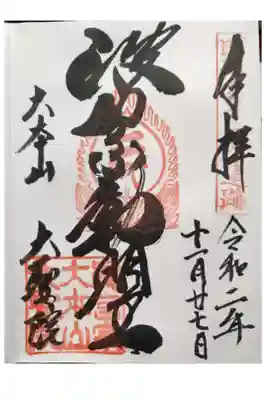 奉拝
令和二年
十一月廿七日
波切不動明王
大本山
大聖院